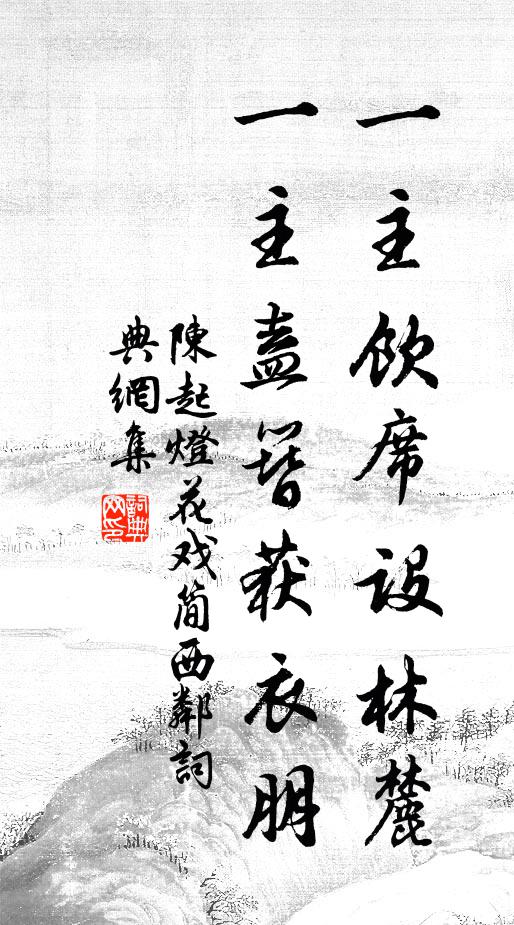 一主飲席設林麓
一主盍簪获衣朋
陳起燈花戏简西鄰詞
典網集
詞典網印